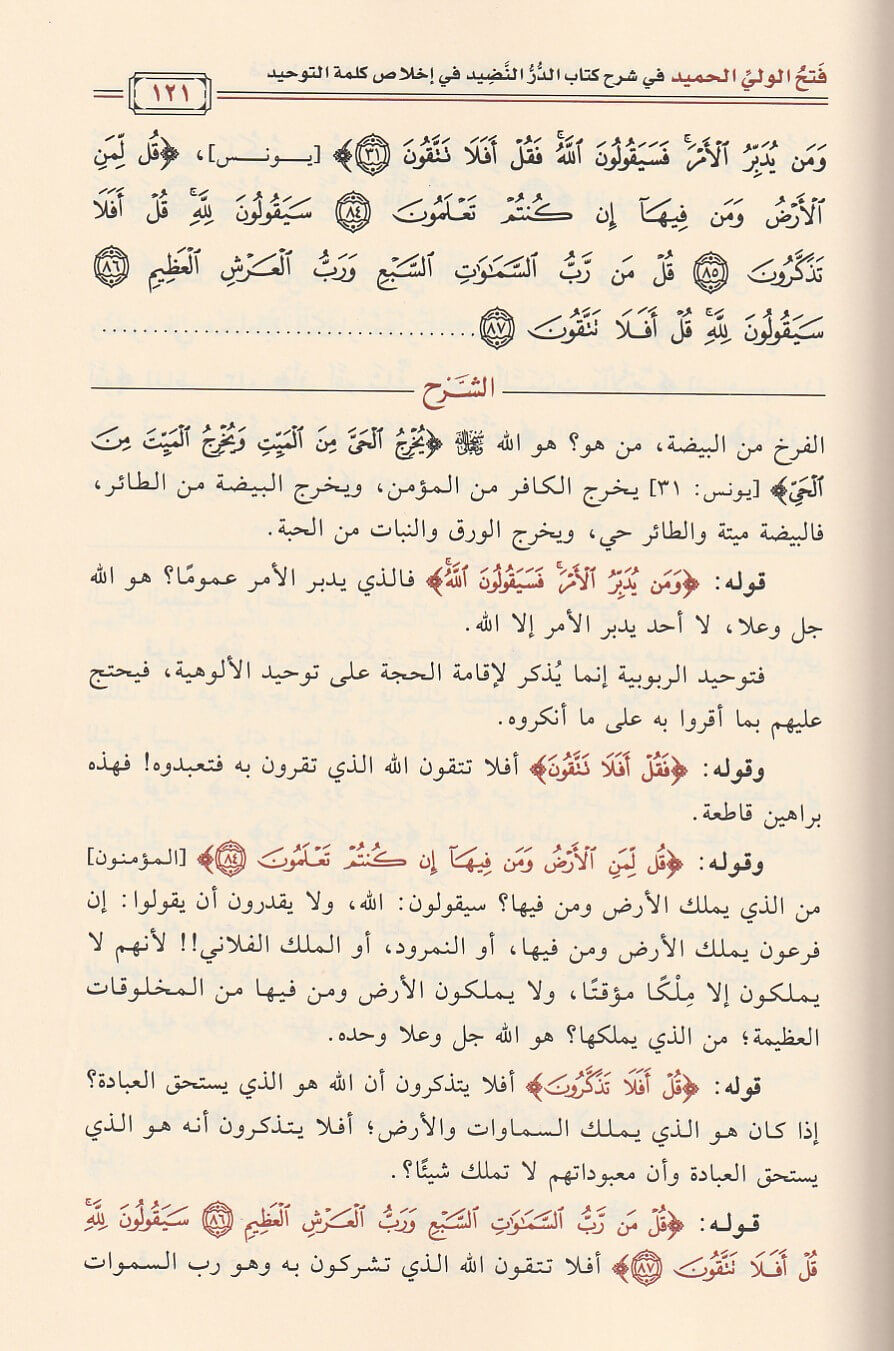 فَتحُ الوليِّ الحميد في شرح كتاب الدُّرُّ النَّضِيد في إخلاص كلمة التوحيد
١٢١
وَمَن يُدَبِّرُ ٱلْأَمْرَۚ فَسَيَقُولُونَ ٱللَّهُۚ فَقُلْ أَفَلَا تَتَّقُونَ ﴿٣١﴾﴾ [يـونـس]، ﴿قُل لِّمَنِ
ٱلْأَرْضُ وَمَن فِيهَآ إِن كُنتُمْ تَعْلَمُونَ ﴿٨٤﴾ سَيَقُولُونَ لِلَّهِۚ قُلْ أَفَلَا
تَذَكَّرُونَ ﴿٨٥﴾ قُلْ مَن رَّبُّ ٱلسَّمَٰوَٰتِ ٱلسَّبْعِ وَرَبُّ ٱلْعَرْشِ ٱلْعَظِيمِ ﴿٨٦﴾
سَيَقُولُونَ لِلَّهِۚ قُلْ أَفَلَا تَتَّقُونَ ﴿٨٧﴾ ..........................................
الشَّرْح
الفرخ من البيضة، من هو؟ هو الله ﴿يُخْرِجُ ٱلْحَيَّ مِنَ ٱلْمَيِّتِ وَيُخْرِجُ ٱلْمَيِّتَ مِنَ
ٱلْحَيِّ﴾ [يونس: ٣١] يخرج الكافر من المؤمن، ويخرج البيضة من الطائر،
فالبيضة ميتة والطائر حي، ويخرج الورق والنبات من الحبة.
قوله: ﴿وَمَن يُدَبِّرُ ٱلْأَمْرَۚ فَسَيَقُولُونَ ٱللَّهُۚ﴾ فالذي يدبر الأمر عمومًا؟ هو الله
جل وعلا، لا أحد يدبر الأمر إلا الله.
فتوحيد الربوبية إنما يُذكر لإقامة الحجة على توحيد الألوهية، فيحتج
عليهم بما أقروا به على ما أنكروه.
وقوله: ﴿فَقُلْ أَفَلَا تَتَّقُونَ﴾ أفلا تتقون الله الذي تقرون به فتعبدوه! فهذه
براهين قاطعة.
وقوله: ﴿قُل لِّمَنِ ٱلْأَرْضُ وَمَن فِيهَآ إِن كُنتُمْ تَعْلَمُونَ ﴿٨٤﴾﴾ [المؤمنون]
من الذي يملك الأرض ومن فيها؟ سيقولون: الله، ولا يقدرون أن يقولوا: إن
فرعون يملك الأرض ومن فيها، أو النمرود، أو الملك الفلاني!! لأنهم لا
يملكون إلا مِلْكًا مؤقتًا، ولا يملكون الأرض ومن فيها من المخلوقات
العظيمة؛ من الذي يملكها؟ هو الله جل وعلا وحده.
قوله: ﴿قُلْ أَفَلَا تَذَكَّرُونَ﴾ أفلا يتذكرون أن الله هو الذي يستحق العبادة؟
إذا كان هو الذي يملك السماوات والأرض؛ أفلا يتذكرون أنه هو الذي
يستحق العبادة وأن معبوداتهم لا تملك شيئًا؟.
قوله: ﴿قُلْ مَن رَّبُّ ٱلسَّمَٰوَٰتِ ٱلسَّبْعِ وَرَبُّ ٱلْعَرْشِ ٱلْعَظِيمِ ﴿٨٦﴾ سَيَقُولُونَ لِلَّهِۚ
قُلْ أَفَلَا تَتَّقُونَ ﴿٨٧﴾﴾ أفلا تتقون الله الذي تشركون به وهو رب السموات